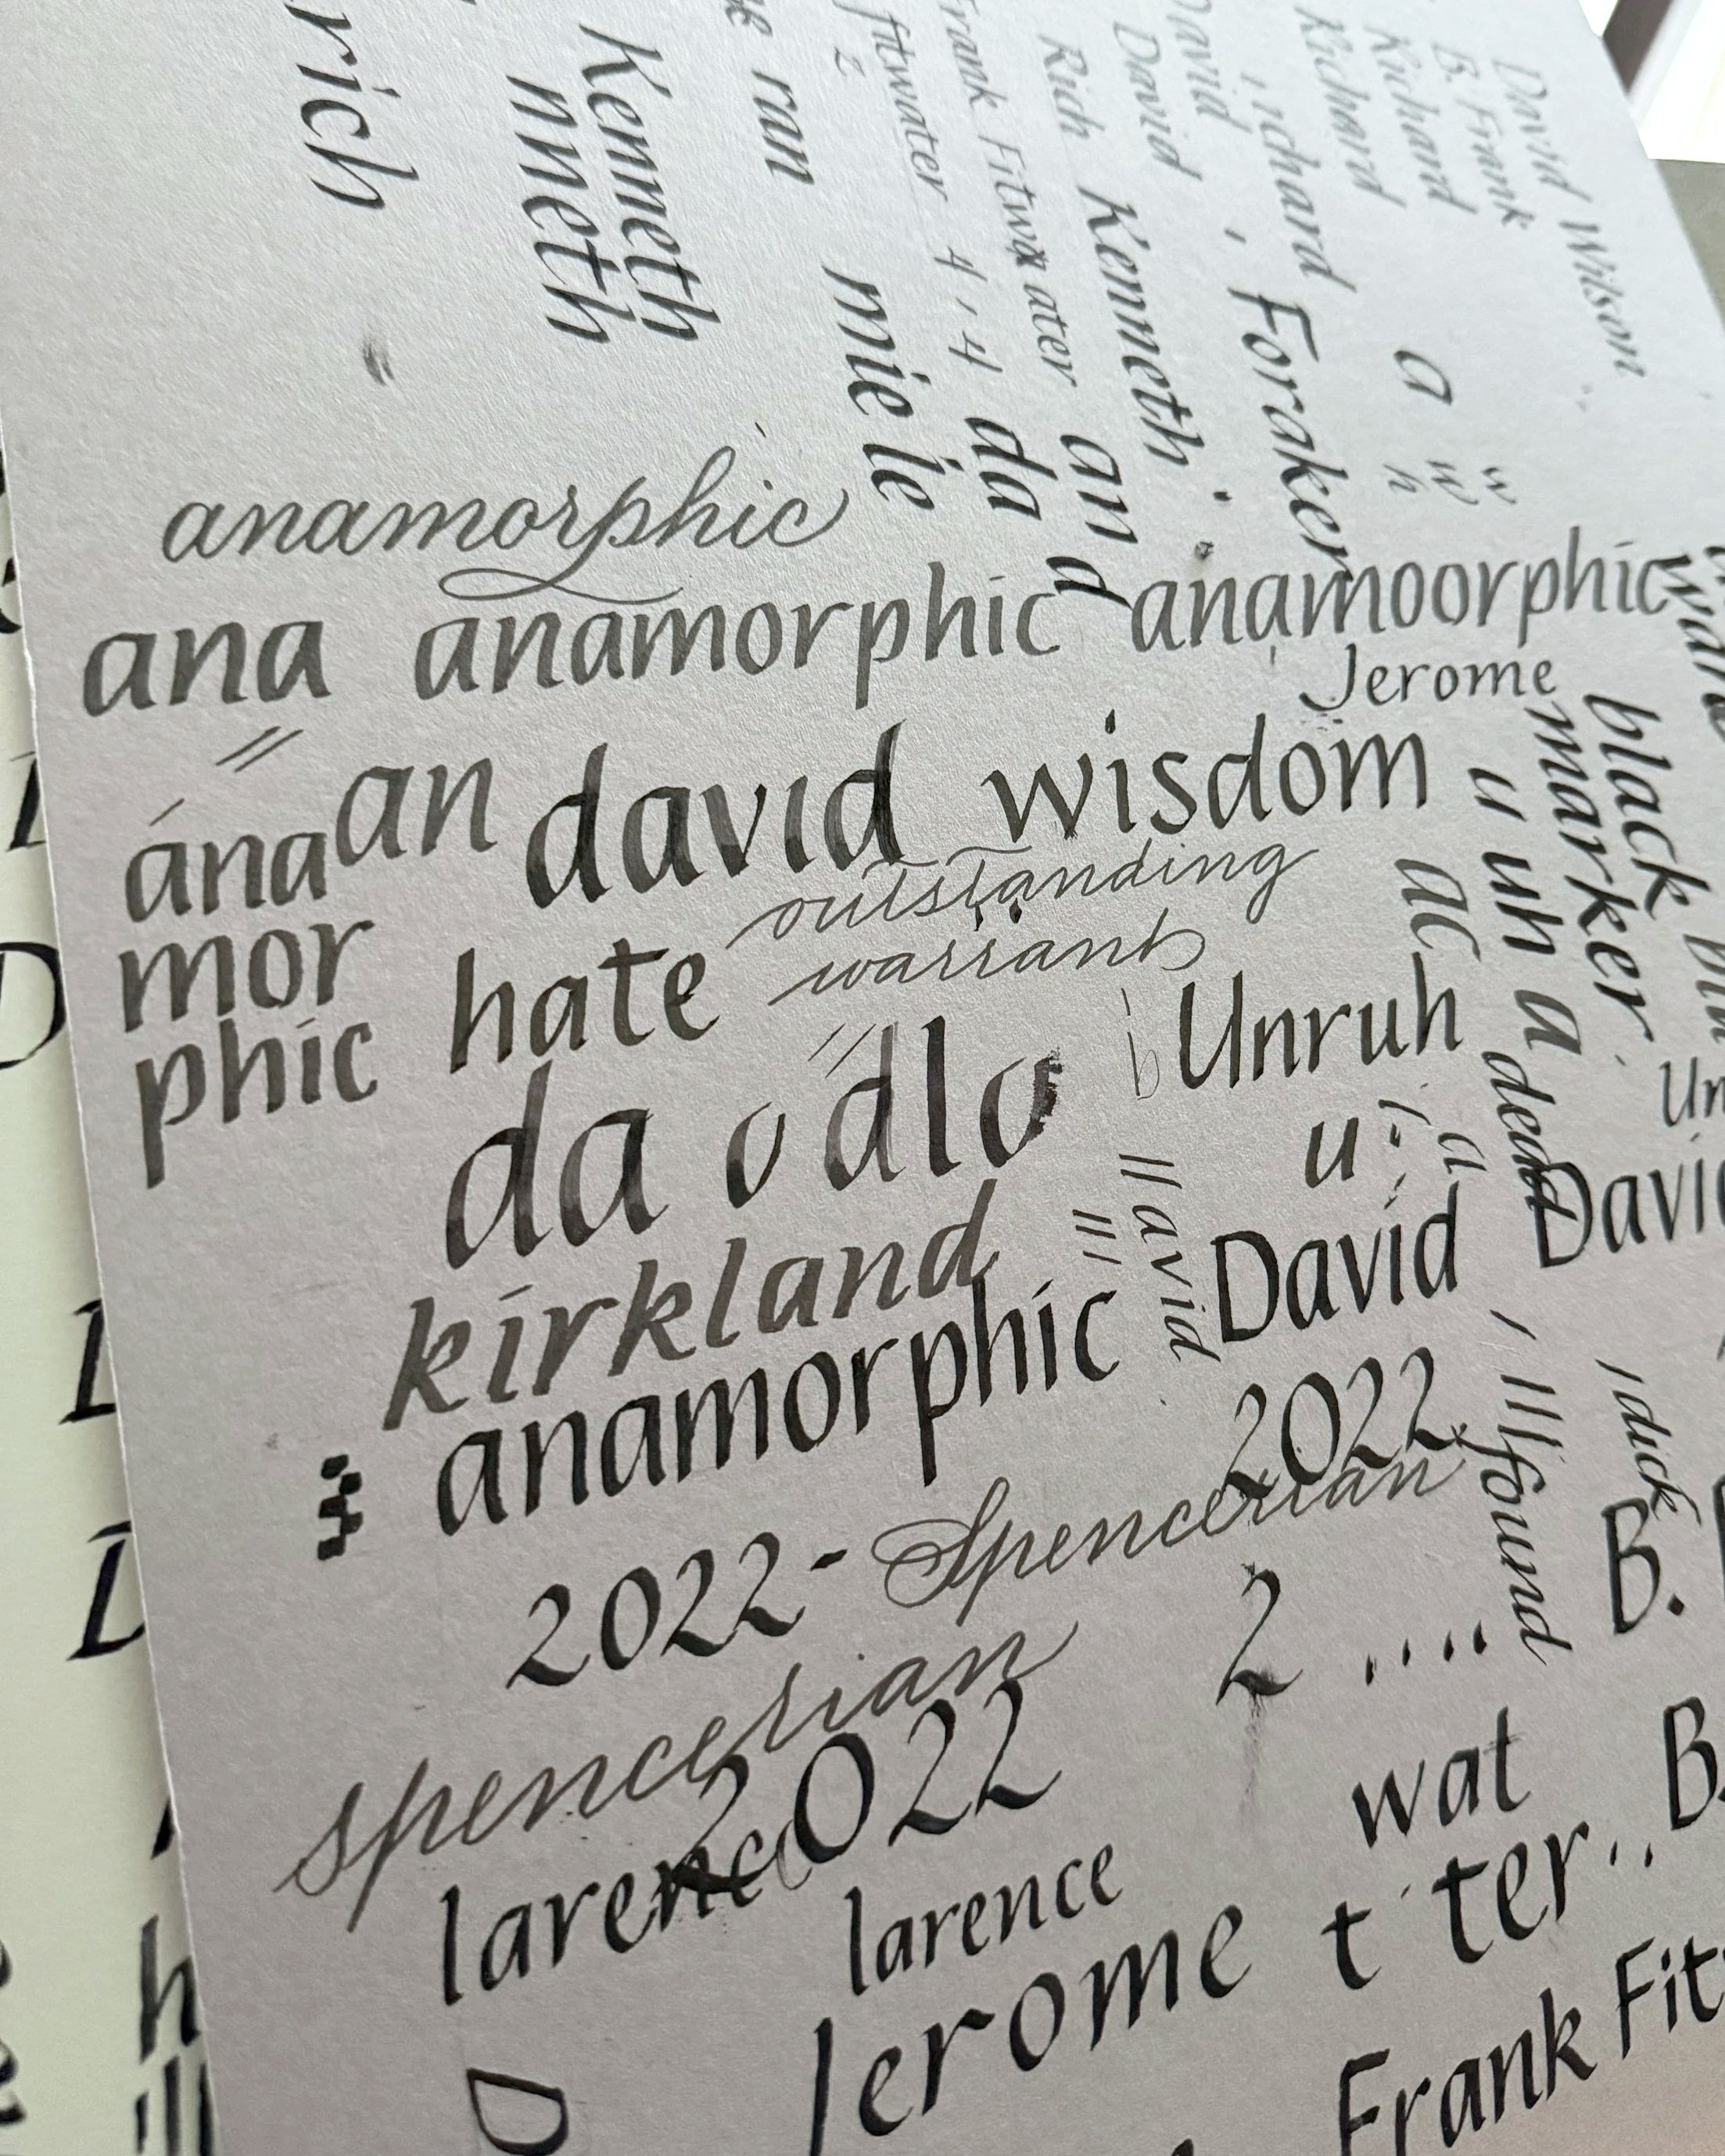 rich
Kenneth
nneth
ran
mie le
fitwater 4, 4 da
2
Frank Fitwa ater an d
Rich Kenneth
David
David
ichard, Foraker
Richard
Richard a
h
B. Frank
w
w
David Wilson
anamorphic
ana anamorphic anamoorphic
Jerome
an david wisdom
ána
mor
phic
outstanding
hate warrants
Unruh
da o dlo
u
kirkland
David David
anamorphic
2022
2022- Spencerian
2
spencerian
2022
larence
larence
wat
Jerome t ter
Frank Fit
B.
B.
black
marker
u uh a dead
ac
a
avid
found
dick
Un
D